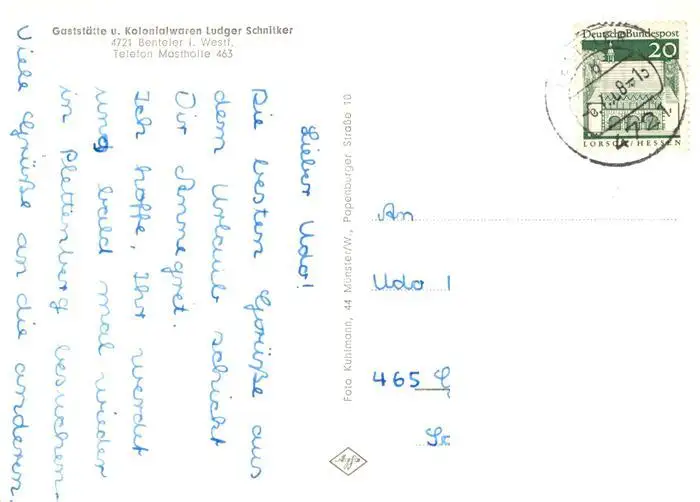 Gaststätte u. Kolonialwaren Ludger Schnitker
4721 Benteler i. Westf.
Telefon Mastholte 463
Lieber Udo!
Die besten Grüße aus
dem Urlaub schickt
Dir Annegret.
Ich hoffe, Ihr werdet
uns bald mal wieder
in Plettenberg besuchen.
Viele Grüße an die anderen.
Foto Kuhlmann, 44 Münster/W., Papenburger Straße 10
Agfa
Deutsche Bundespost
20
LORSCH/HESSEN
4721
An
Udo
465